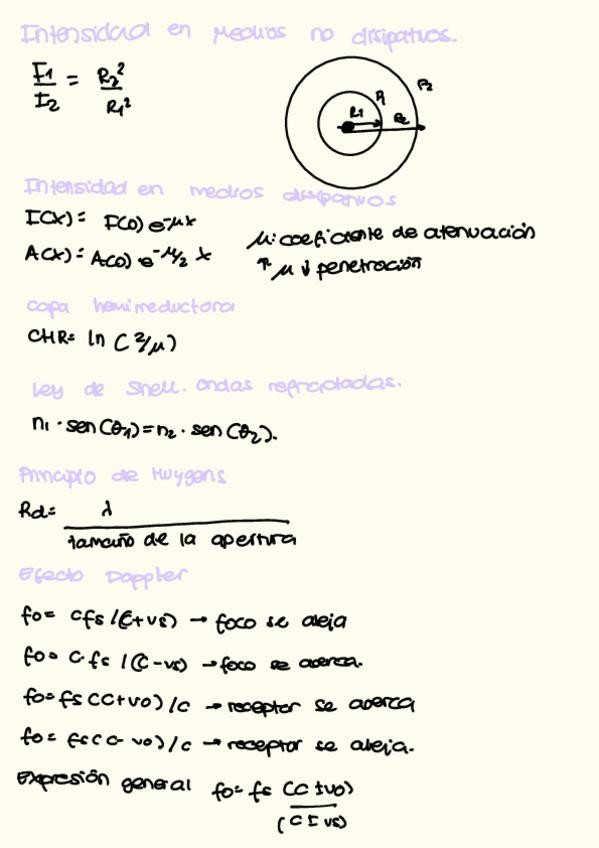 Intensidad en medios no disipativos.
I1/I2 = R2²/R1²
R1 R2 P1 P2
Intensidad en medios disipativos
I(x) = I(0) e^-μx
A(x) = A(0) e^-μ/2 x
μ: coeficiente de atenuación
↑ μ ↓ penetración
capa hemirreductora
CHR = ln (2/μ)
Ley de Snell. ondas refractadas.
n1 · sen(θ1) = n2 · sen(θ2).
Principio de Huygens
Rd = λ / tamaño de la apertura
Efecto Doppler
fo = cfs / (c+vs) → foco se aleja
fo = c·fs / (c-vs) → foco se acerca.
fo = fs (c+vo) / c → receptor se acerca
fo = fs (c-vo) / c → receptor se aleja.
Expresión general fo = fs (c±vo) / (c±vs)